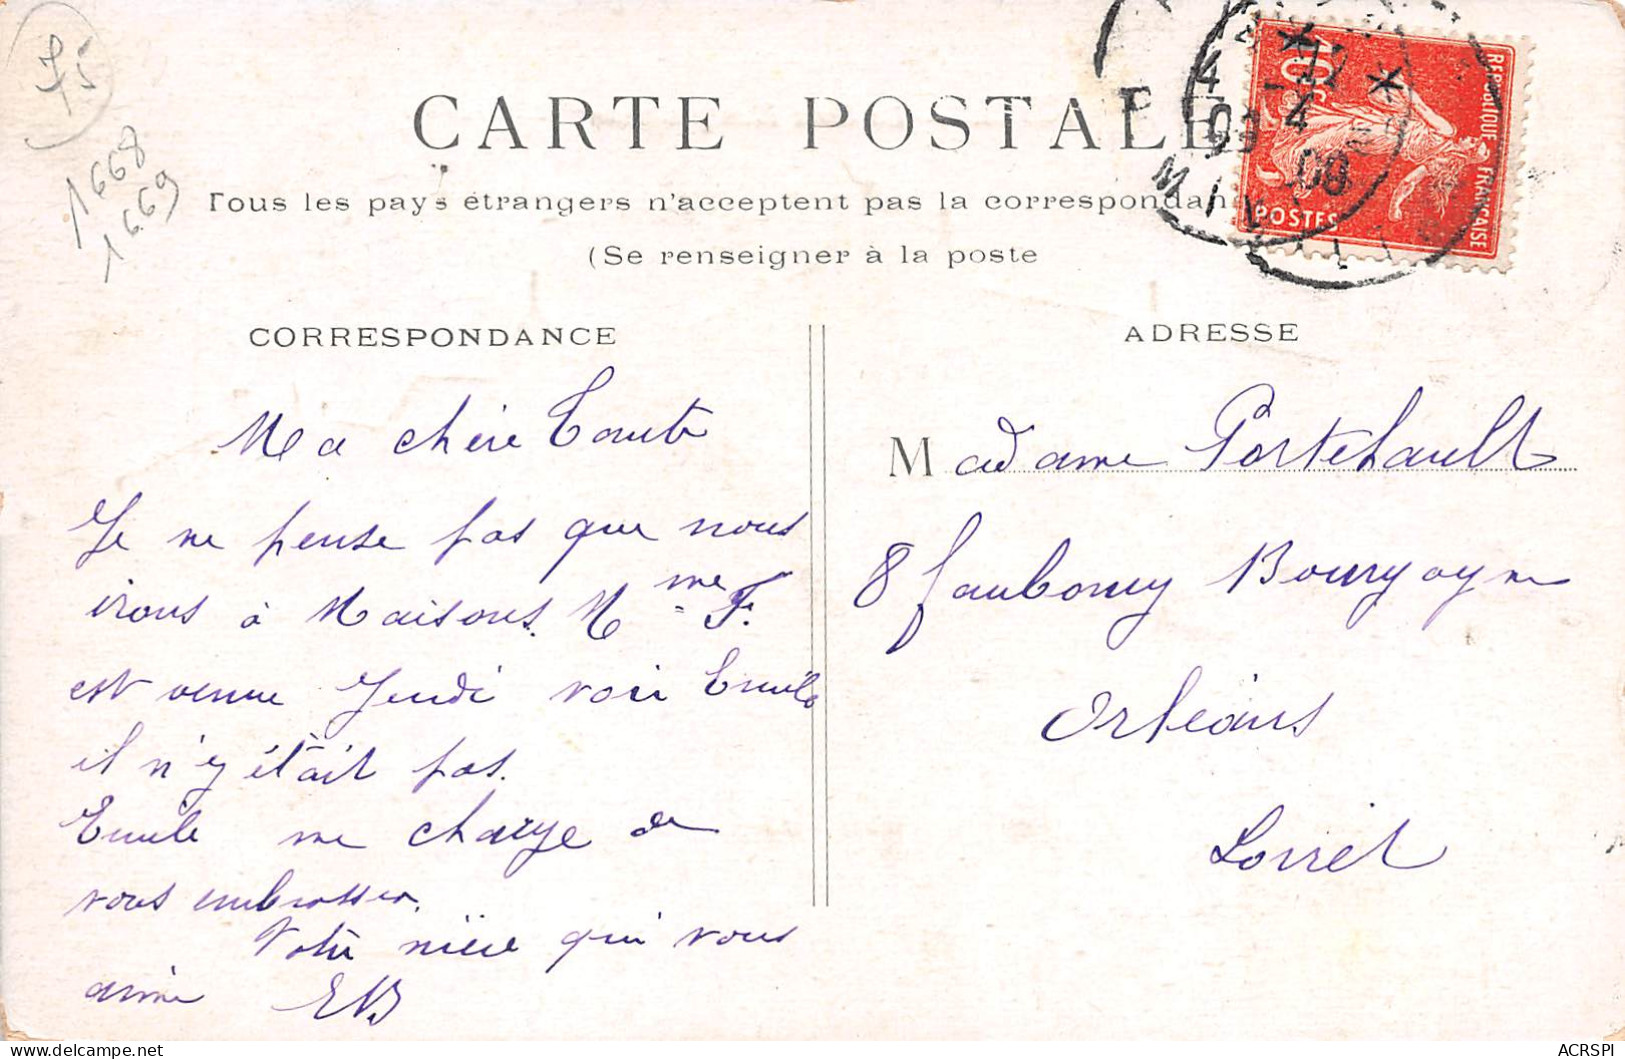 75
1668
1669
CARTE POSTALE
Tous les pays étrangers n'acceptent pas la correspondan
(Se renseigner à la poste
REPUBLIQUE FRANÇAISE
10c
POSTES
4
09
CORRESPONDANCE
Ma chère Tante
Je ne pense pas que nous
irons à Maisons. Mme F.
est venue Jeudi voir Emile
il n'y était pas.
Emile me charge de
vous embrasser.
Votre nièce qui vous
aime EB
ADRESSE
Madame Portehault
8 faubourg Bourgogne
Orléans
Loiret
ACRSPI